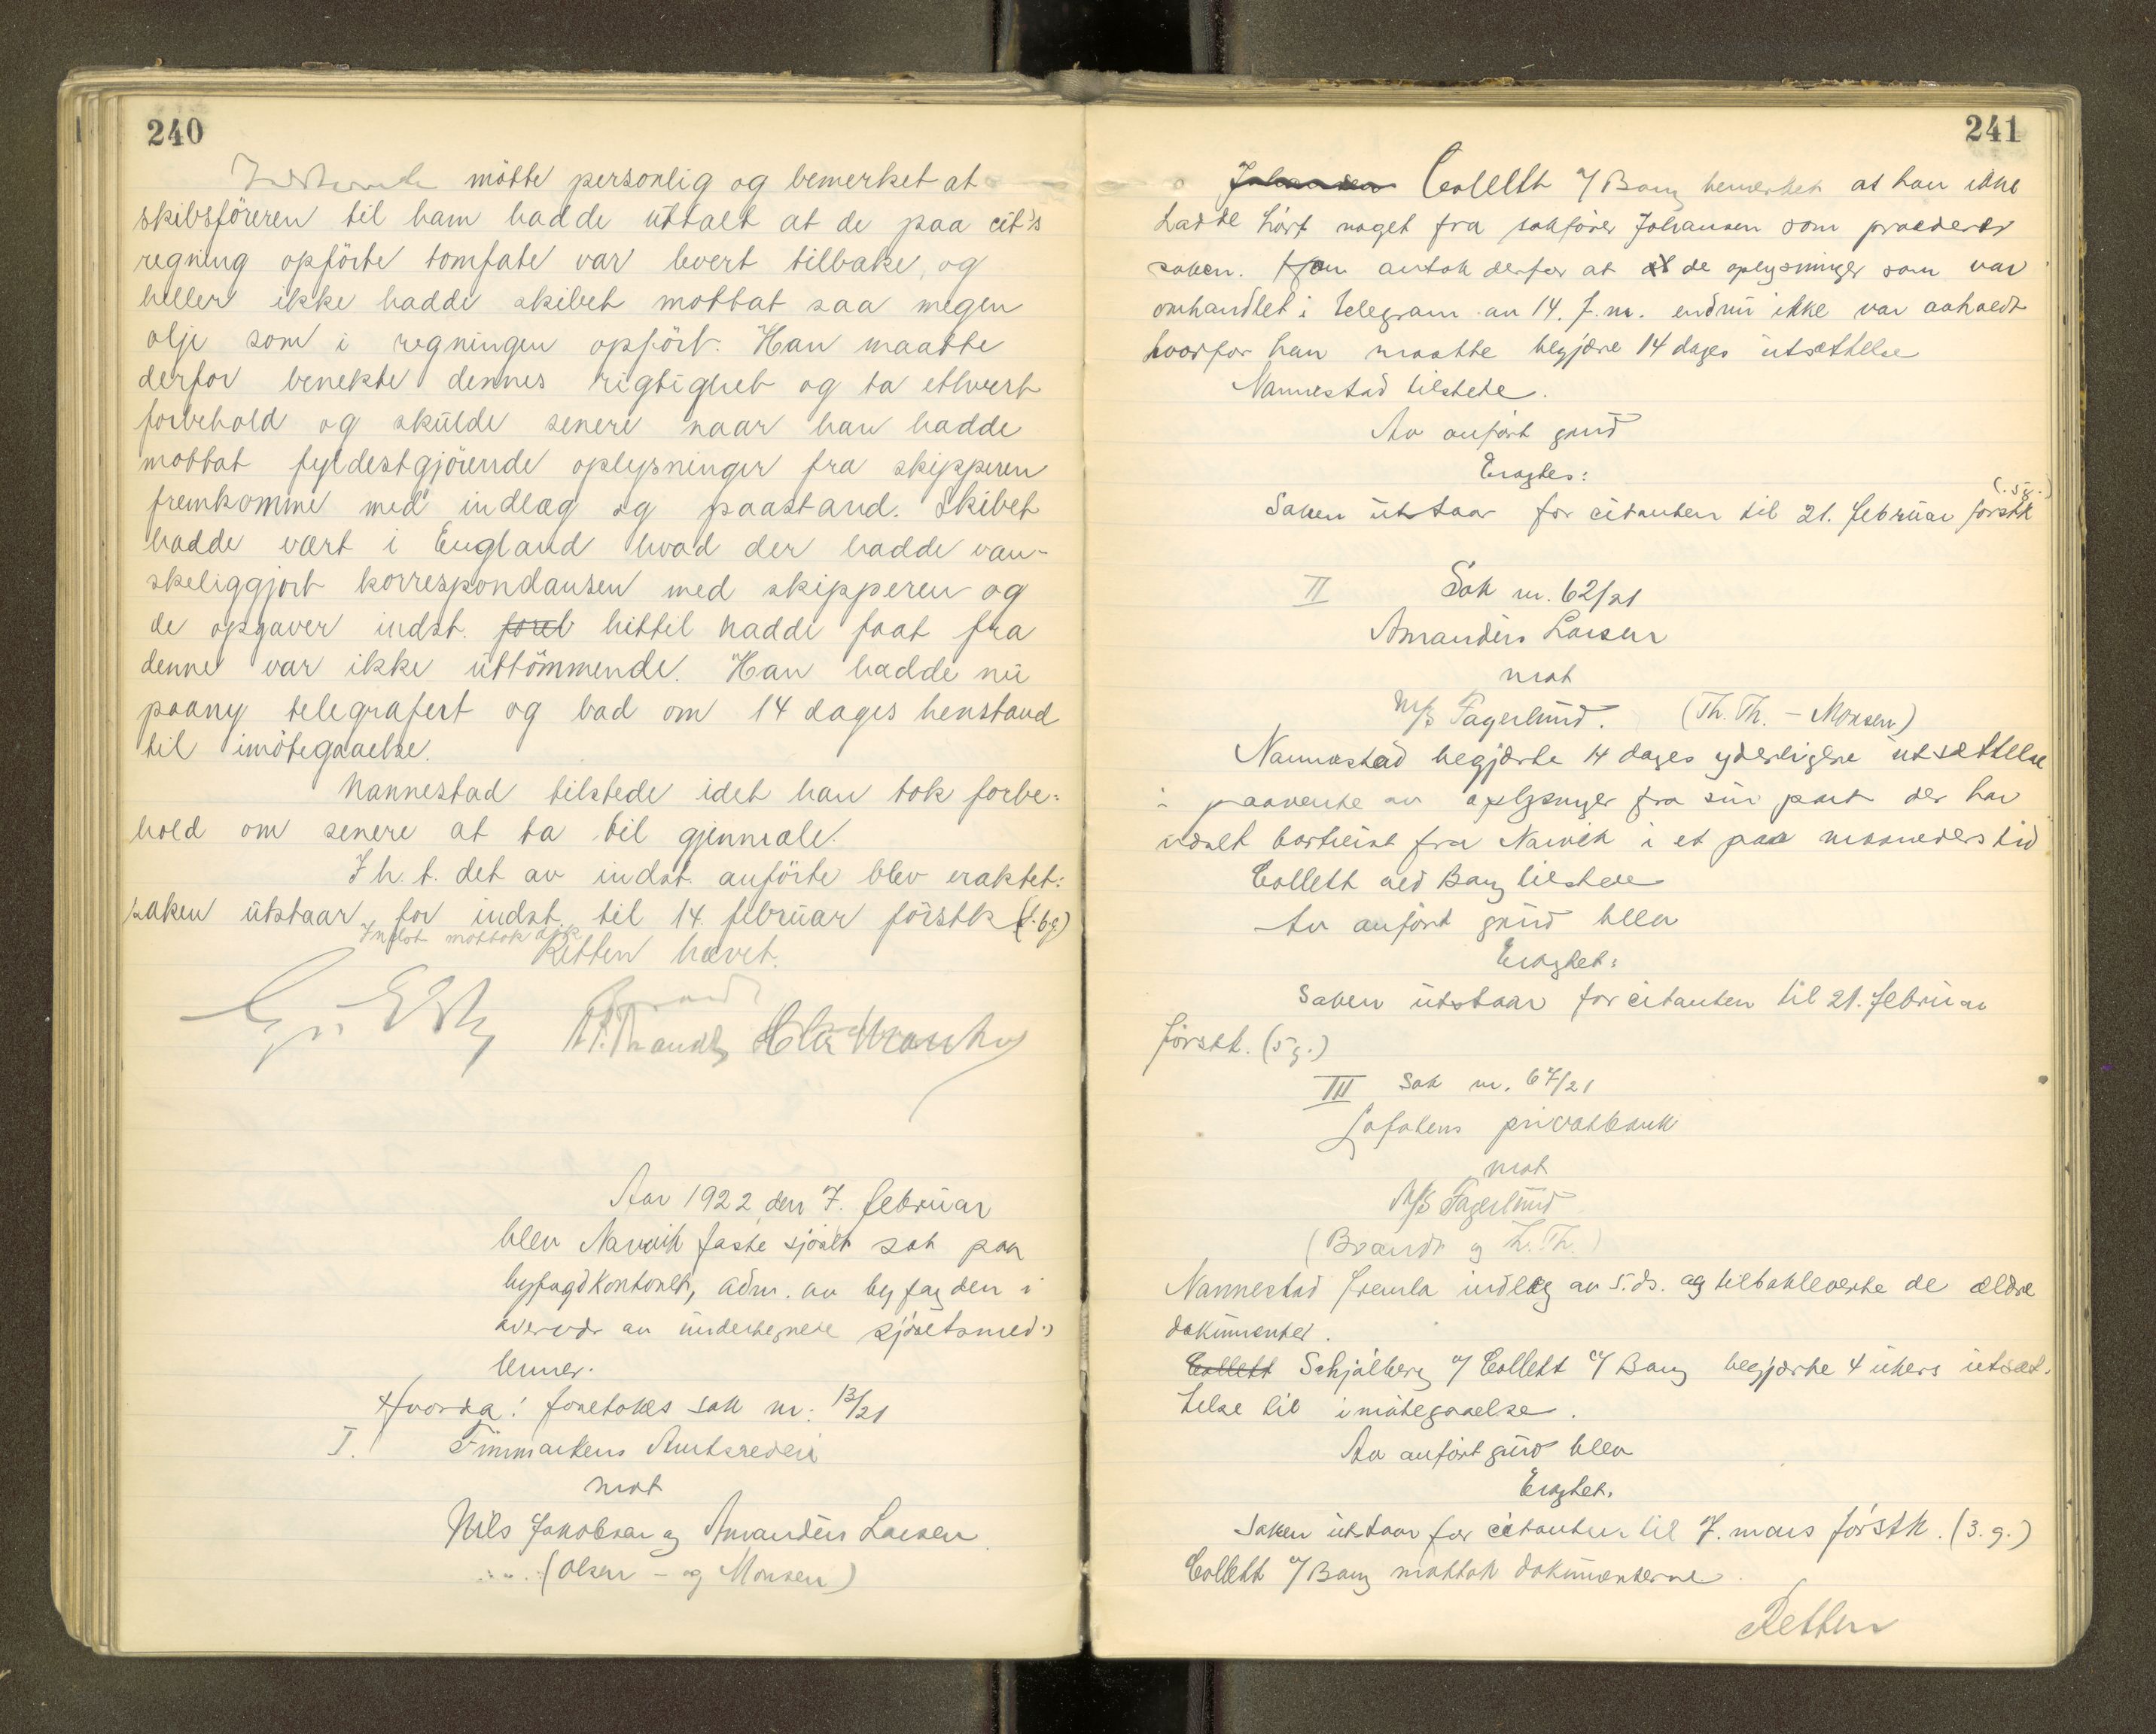 240
Indstevnte møtte personlig og bemerket at
skibsföreren til ham hadde üttalt at de paa cit's
regning opförte tomfate var levert tilbake, og
heller ikke hadde skibet mottat saa megen
olje som i regningen opfört. Han maatte
derfor benekte dennes rigtighet og ta ethvert
forbehold og skülde senere naar han hadde
mottat fyldestgjörende oplysninger fra skipperen
fremkomme med indlæg og paastand. Skibet
hadde vært i England hvad der hadde van-
skeliggjort korrespondansen med skipperen og
de opgaver indst. hittil hadde faat fra
denne var ikke üttömmende. Han hadde nü
paany telegrafert og bad om 14 dages henstand
til imötegaaelse.
Nannestad tilstede idet han tok forbe-
hold om senere at ta til gjenmæle.
I h. t. det av indst. anförte blev eraktet:
saken ütstaar for indst. til 14. februar förstk (1. bg)
Indst mottok dok
Retten hævet.
Aar 1922 den 7. februar
blev Narvik faste sjøret sat paa
byfogdkontoret, adm. av byfogden i
overvær av undertegnede sjøretsmed-
lemmer.
Hvorda: foretokes sak nr. 13/21
I. Finmarkens Amtsrederi
mot
Nils Jakobsen og Amandus Larsen
(Olsen - og Monsen)
241
Collett o/ Bang bemerket at han ikke
hadde hört noget fra sakförer Johansen som procederer
saken. Han antok derfor at de oplysninger som var
omhandlet i telegram av 14. f. m. endnü ikke var avholdt
hvorfor han maatte begjære 14 dages ütsættelse
Nannestad tilstede.
Av anfört grund
Eragtes:
Saken ütstaar for citanten til 21. februar förstk (. 5g.)
II Sak nr. 62/21
Amandus Larsen
mot
M/S Fagerlund. (Th. Th. - Monsen)
Nannestad begjærte 14 dages yderligere ütsættelse
i paavente av oplysninger fra sin part der har
været bortreist fra Narvik i et par maaneders tid
Collett ved Bang tilstede
Av anfört grund blev
Eragtet:
Saken ütstaar for citanten til 21. februar
förstk. (5 g.)
III Sak nr. 67/21
Lofotens privatbank
mot
M/S Fagerlund
(Brandt og Th. Th.)
Nannestad fremla indlæg av 5. ds. og tilbakleverte de ældre
dokumenter.
Collett Schjølberg o/ Collett o/ Bang begjærte 4 ükers ütsæt-
telse til imøtegaaelse.
Av anfört grund blev
Eragtet.
Saken ütstaar for citanten til 7. mars förstk. (3. g.)
Collett o/ Bang mottok dokumenterne.
Retten